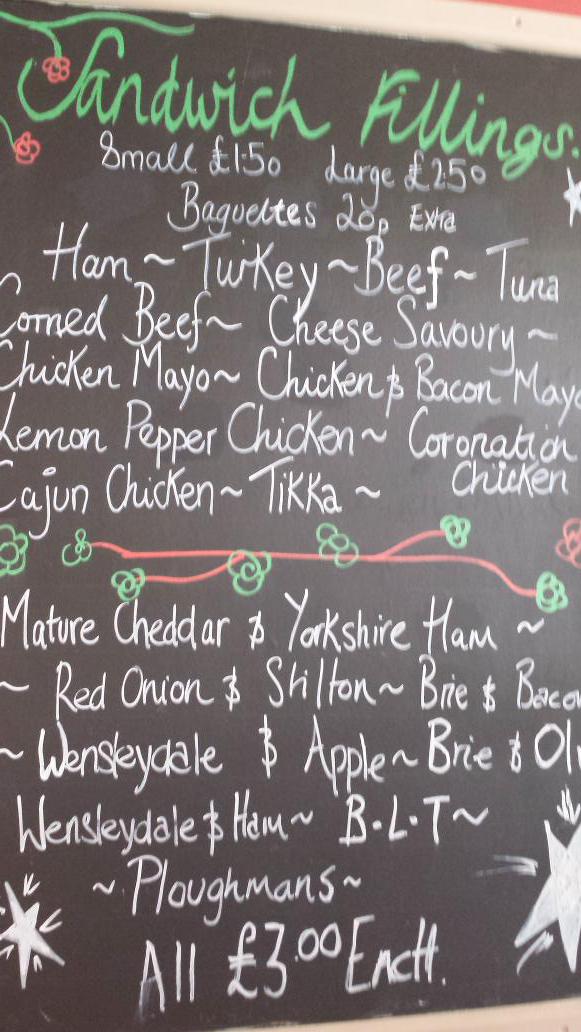 Sandwich Fillings.
Small £1.50 Large £2.50
Baguettes 20p Extra
Ham ~ Turkey ~ Beef ~ Tuna
Corned Beef ~ Cheese Savoury ~
Chicken Mayo ~ Chicken & Bacon Mayo
Lemon Pepper Chicken ~ Coronation
Chicken
Cajun Chicken ~ Tikka ~
Mature Cheddar & Yorkshire Ham ~
~ Red Onion & Stilton ~ Brie & Bacon
~ Wensleydale & Apple ~ Brie &
Wensleydale & Ham ~ B.L.T ~
~ Ploughmans ~
All £3.00 Each.